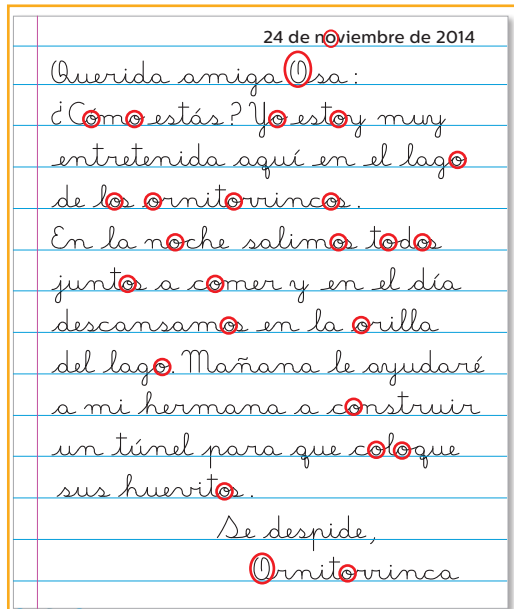 24 de noviembre de 2014
Querida amiga Osa:
¿Cómo estás? Yo estoy muy
entretenida aquí en el lago
de los ornitorrincos.
En la noche salimos todos
juntos a comer y en el día
descansamos en la orilla
del lago. Mañana le ayudaré
a mi hermana a construir
un túnel para que coloque
sus huevitos.
Se despide,
Ornitorrinca